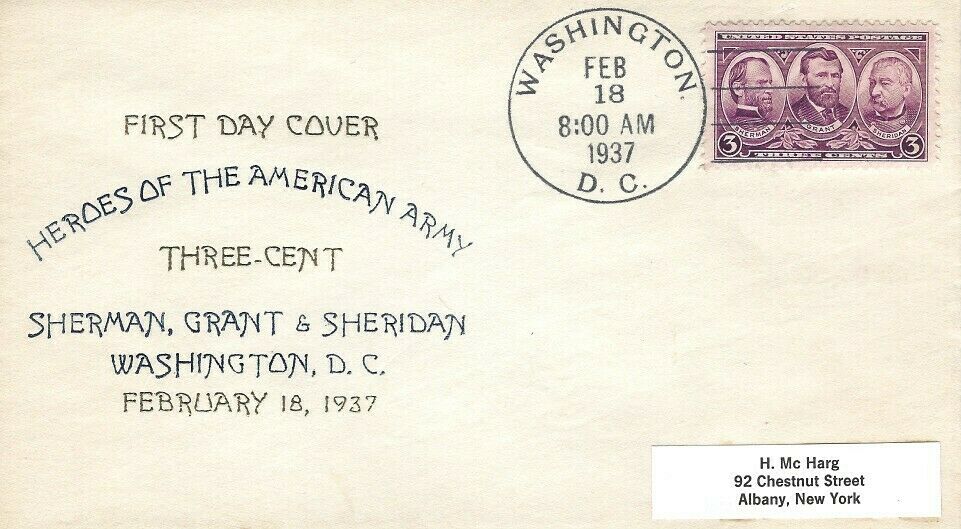 FIRST DAY COVER
HEROES OF THE AMERICAN ARMY
THREE-CENT
SHERMAN, GRANT & SHERIDAN
WASHINGTON, D. C.
FEBRUARY 18, 1937
WASHINGTON,
FEB
18
8:00 AM
1937
D. C.
UNITED STATES POSTAGE
SHERMAN GRANT SHERIDAN
3 THREE CENTS 3
H. Mc Harg
92 Chestnut Street
Albany, New York